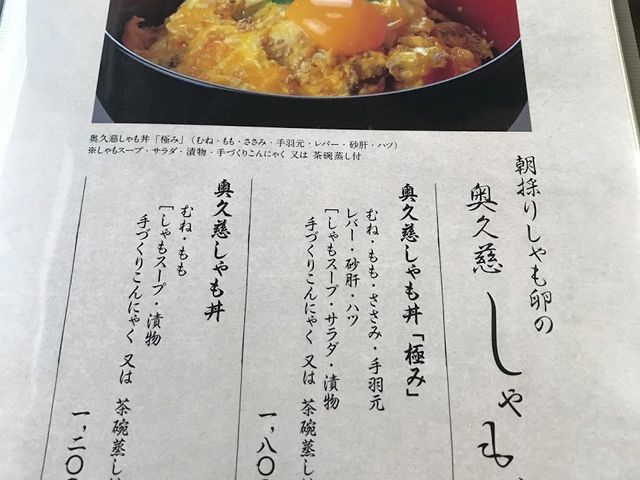 奥久慈しゃも丼「極み」（むね・もも・ささみ・手羽元・レバー・砂肝・ハツ）
※しゃもスープ・サラダ・漬物・手づくりこんにゃく 又は 茶碗蒸し付
朝採りしゃも卵の
奥久慈しゃも
奥久慈しゃも丼「極み」
むね・もも・ささみ・手羽元
レバー・砂肝・ハツ
［しゃもスープ・サラダ・漬物
手づくりこんにゃく 又は 茶碗蒸し
一，八〇
奥久慈しゃも丼
むね・もも
［しゃもスープ・漬物
手づくりこんにゃく 又は 茶碗蒸し
一，二〇